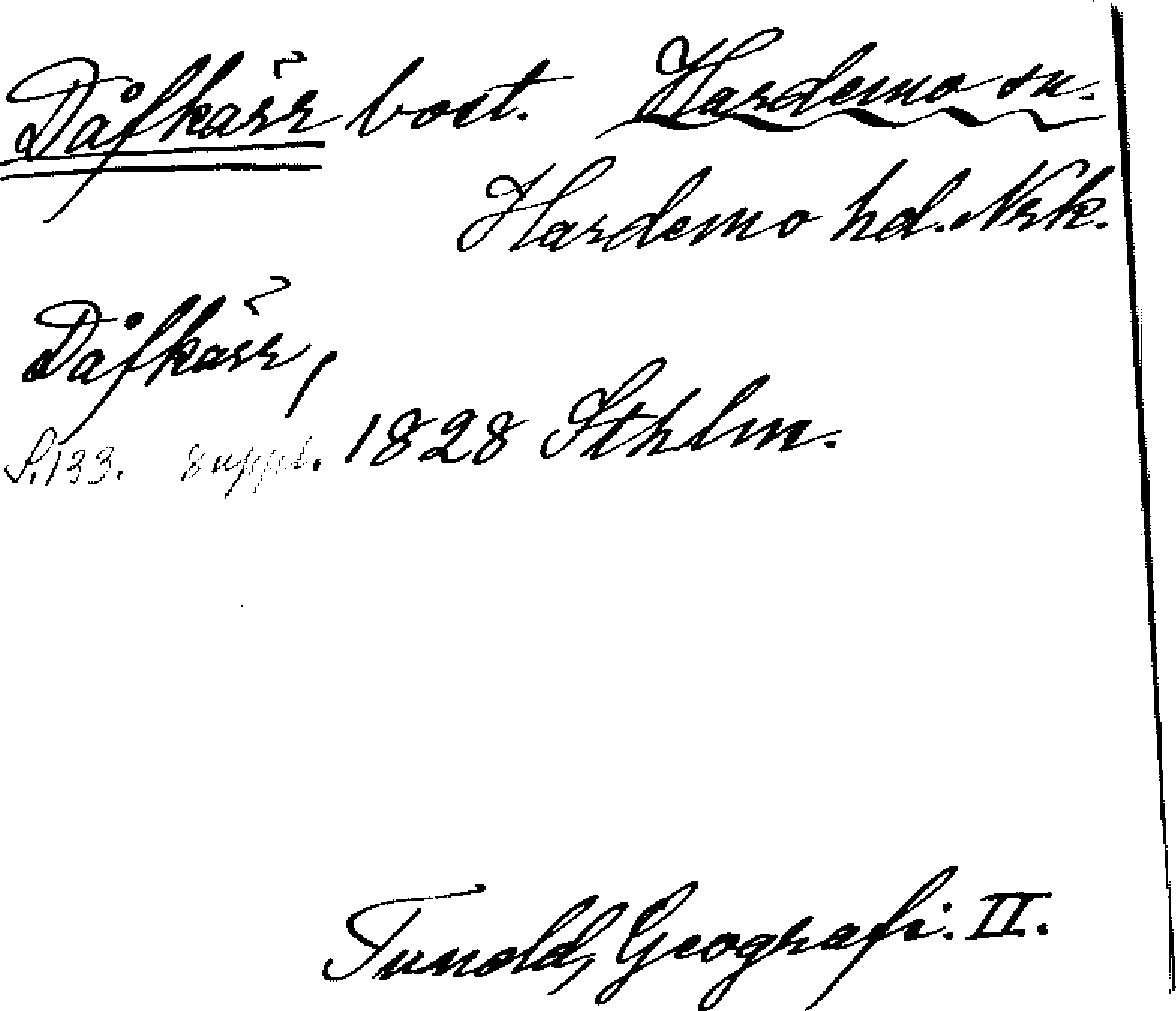 Dåfkärr bost. Hardemo sn.
Hardemo hd. Nrk.
Dåfkärr,
S. 133. suppl. 1828 Sthlm.
Tunold, Geografi. II.